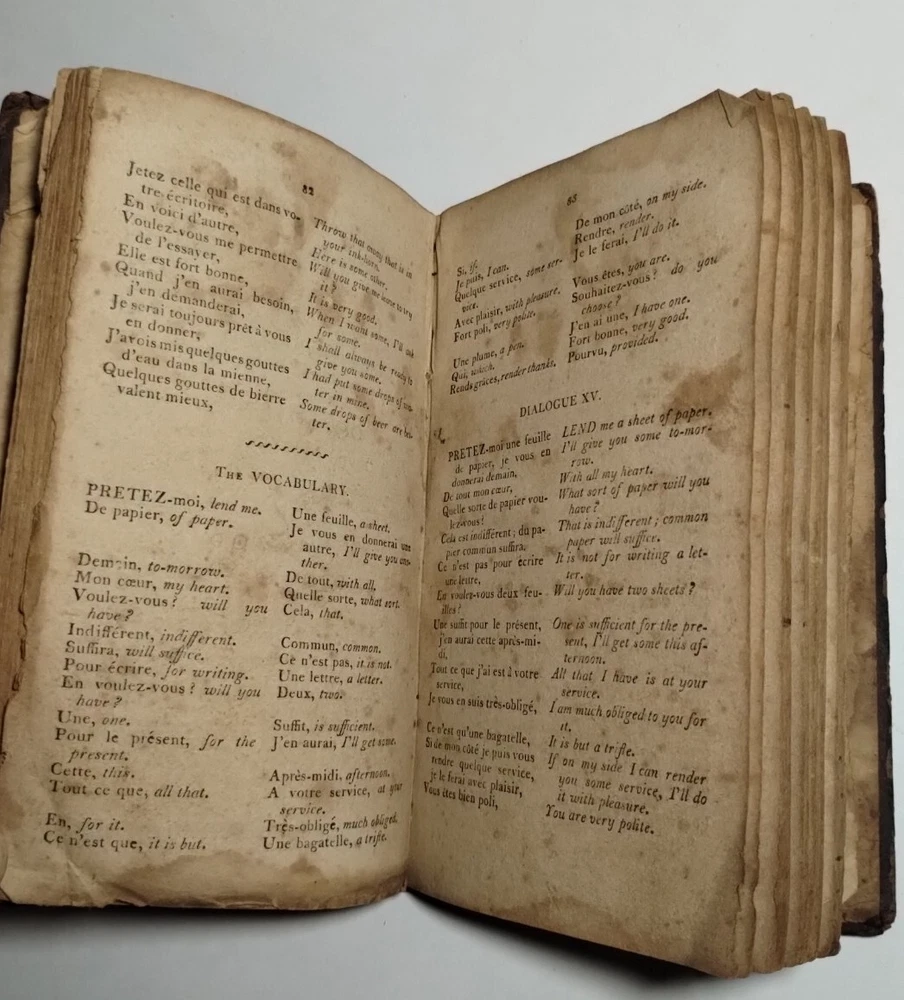 82
Jetez celle qui est dans vo-
tre écritoire,
En voici d'autre,
Voulez-vous me permettre
de l'essayer,
Elle est fort bonne,
Quand j'en aurai besoin,
j'en demanderai,
Je serai toujours prêt à vous
en donner,
J'avois mis quelques gouttes
d'eau dans la mienne,
Quelques gouttes de bierre
valent mieux,
Throw that away that is in
your ink-horn.
Here is some other.
Will you give me leave to try
it?
It is very good.
When I want some, I'll ask
for some.
I shall always be ready to
give you some.
I had put some drops of wa-
ter in mine.
Some drops of beer are bet-
ter.
THE VOCABULARY.
PRETEZ-moi, lend me.
De papier, of paper.
Demain, to-morrow.
Mon cœur, my heart.
Voulez-vous? will you
have?
Indifférent, indifferent.
Suffira, will suffice.
Pour écrire, for writing.
En voulez-vous? will you
have?
Une, one.
Pour le présent, for the
present.
Cette, this.
Tout ce que, all that.
En, for it.
Ce n'est que, it is but.
Une feuille, a sheet.
Je vous en donnerai une
autre, I'll give you ano-
ther.
De tout, with all.
Quelle sorte, what sort.
Cela, that.
Commun, common.
Ce n'est pas, it is not.
Une lettre, a letter.
Deux, two.
Suffit, is sufficient.
J'en aurai, I'll get some.
Après-midi, afternoon.
A votre service, at your
service.
Très-obligé, much obliged.
Une bagatelle, a trifle.
83
Si, if.
Je puis, I can.
Quelque service, some ser-
vice.
Avec plaisir, with pleasure.
Fort poli, very polite.
Une plume, a pen.
Qui, which.
Rends grâces, render thanks.
De mon côté, on my side.
Rendre, render.
Je le ferai, I'll do it.
Vous êtes, you are.
Souhaitez-vous? do you
choose?
J'en ai une, I have one.
Fort bonne, very good.
Pourvu, provided.
DIALOGUE XV.
PRETEZ-moi une feuille
de papier, je vous en
donnerai demain,
De tout mon cœur,
Quelle sorte de papier vou-
lez-vous?
Cela est indifférent; du pa-
pier commun suffira,
Ce n'est pas pour écrire
une lettre,
En voulez-vous deux feu-
illes?
Une suffit pour le présent,
j'en aurai cette après-mi-
di,
Tout ce que j'ai est à votre
service,
Je vous en suis très-obligé,
Ce n'est qu'une bagatelle,
Si de mon côté je puis vous
rendre quelque service,
je le ferai avec plaisir,
Vous êtes bien poli,
LEND me a sheet of paper.
I'll give you some to-mor-
row.
With all my heart.
What sort of paper will you
have?
That is indifferent; common
paper will suffice.
It is not for writing a let-
ter.
Will you have two sheets?
One is sufficient for the pre-
sent, I'll get some this af-
ternoon.
All that I have is at your
service.
I am much obliged to you for
it.
It is but a trifle.
If on my side I can render
you some service, I'll do
it with pleasure.
You are very polite.